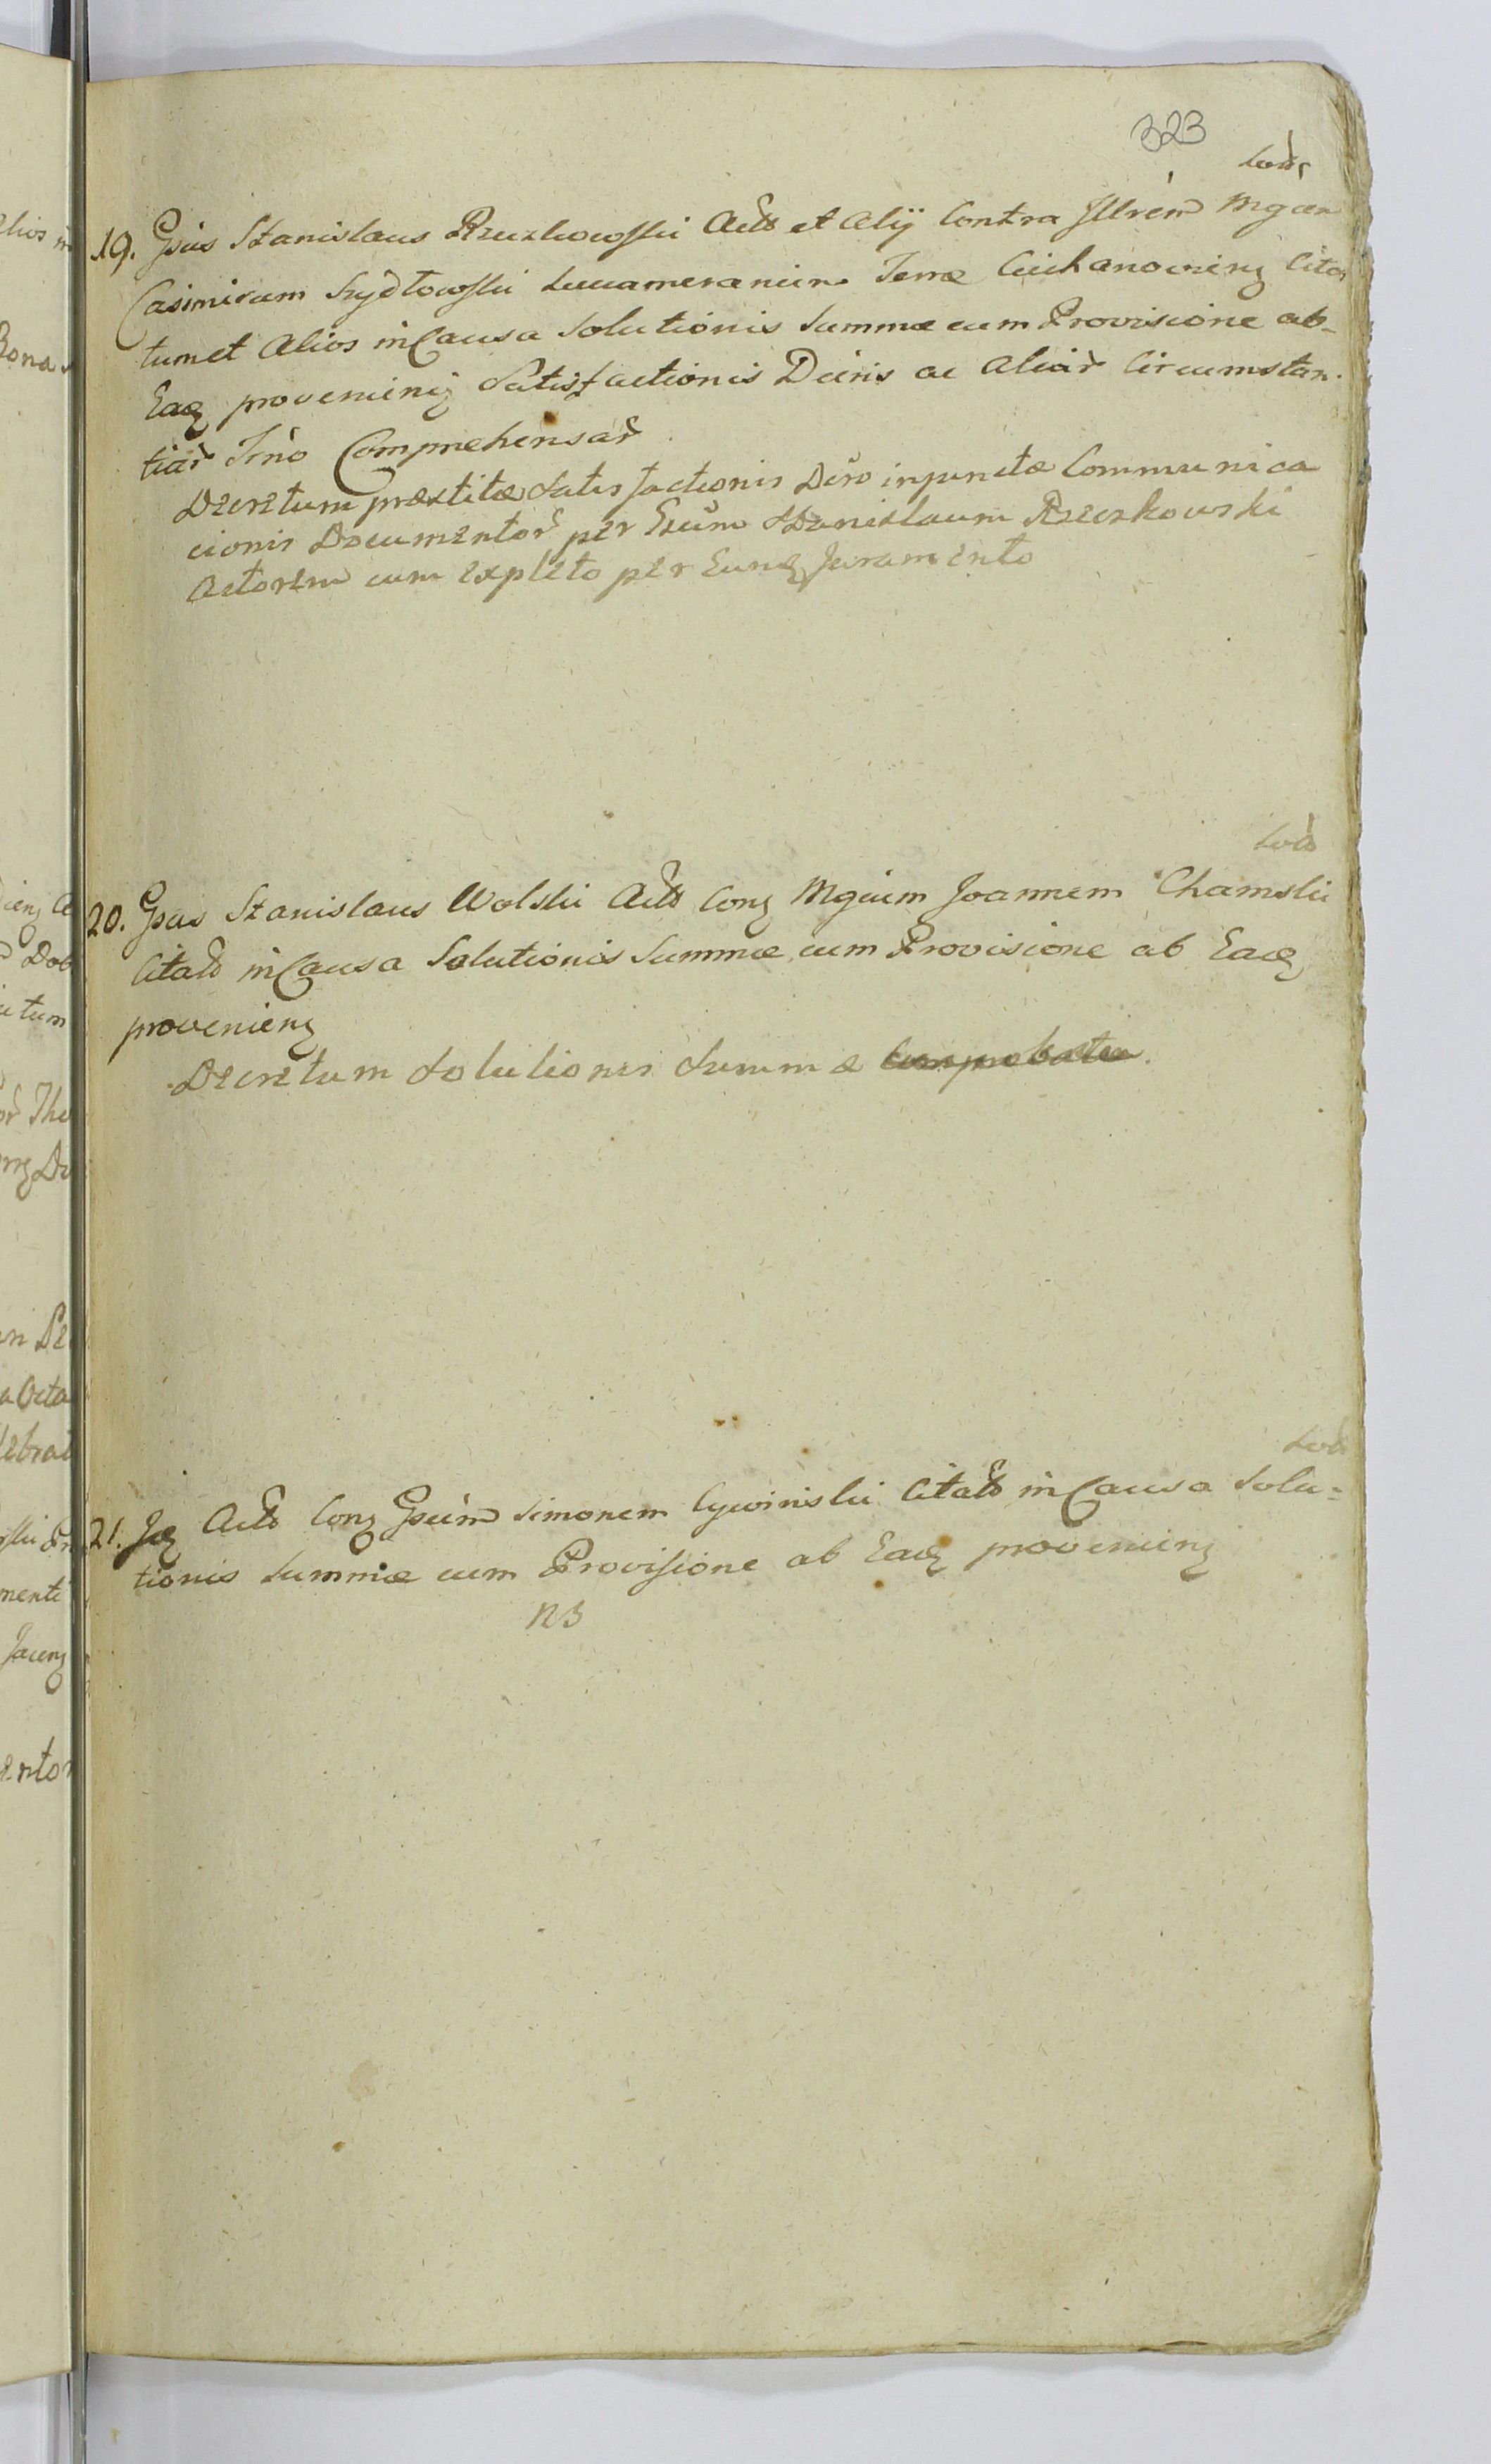 323
19. Gsus Stanislaus Rzeczkowski Actō et Alij Contra Illrem Mgcum
Casimirum Szydłowski Succamerarium Terræ Ciechanoviens Cita
tum et Alios in Causa Solutionis Summæ cum Provisione ab
Eaq provenienj Satisfactionis Dcīris ac Aliar̃ Circumstan-
tiar̃ Trno Comprehensar̃
Decretum præstitæ Satisfactionis Dcro injunctæ Communica
cionis Documentor̃ per Gsum Stanislaum Rzeczkowski
Actorem cum expleto per Eunq Juramento
20. Gsus Stanislaus Wolski Actō Conz Mgcum Joannem Chamski
Citatō in Causa Solutionis Summæ cum Provisione ab Eaq
provenienz
Decretum Solutionis Summæ
21. Jq Actō Conz Gsum Simonem Cywinski Citatō in Causa Solu=
tionis Summæ cum Provisione ab Eaq provenienz
NB